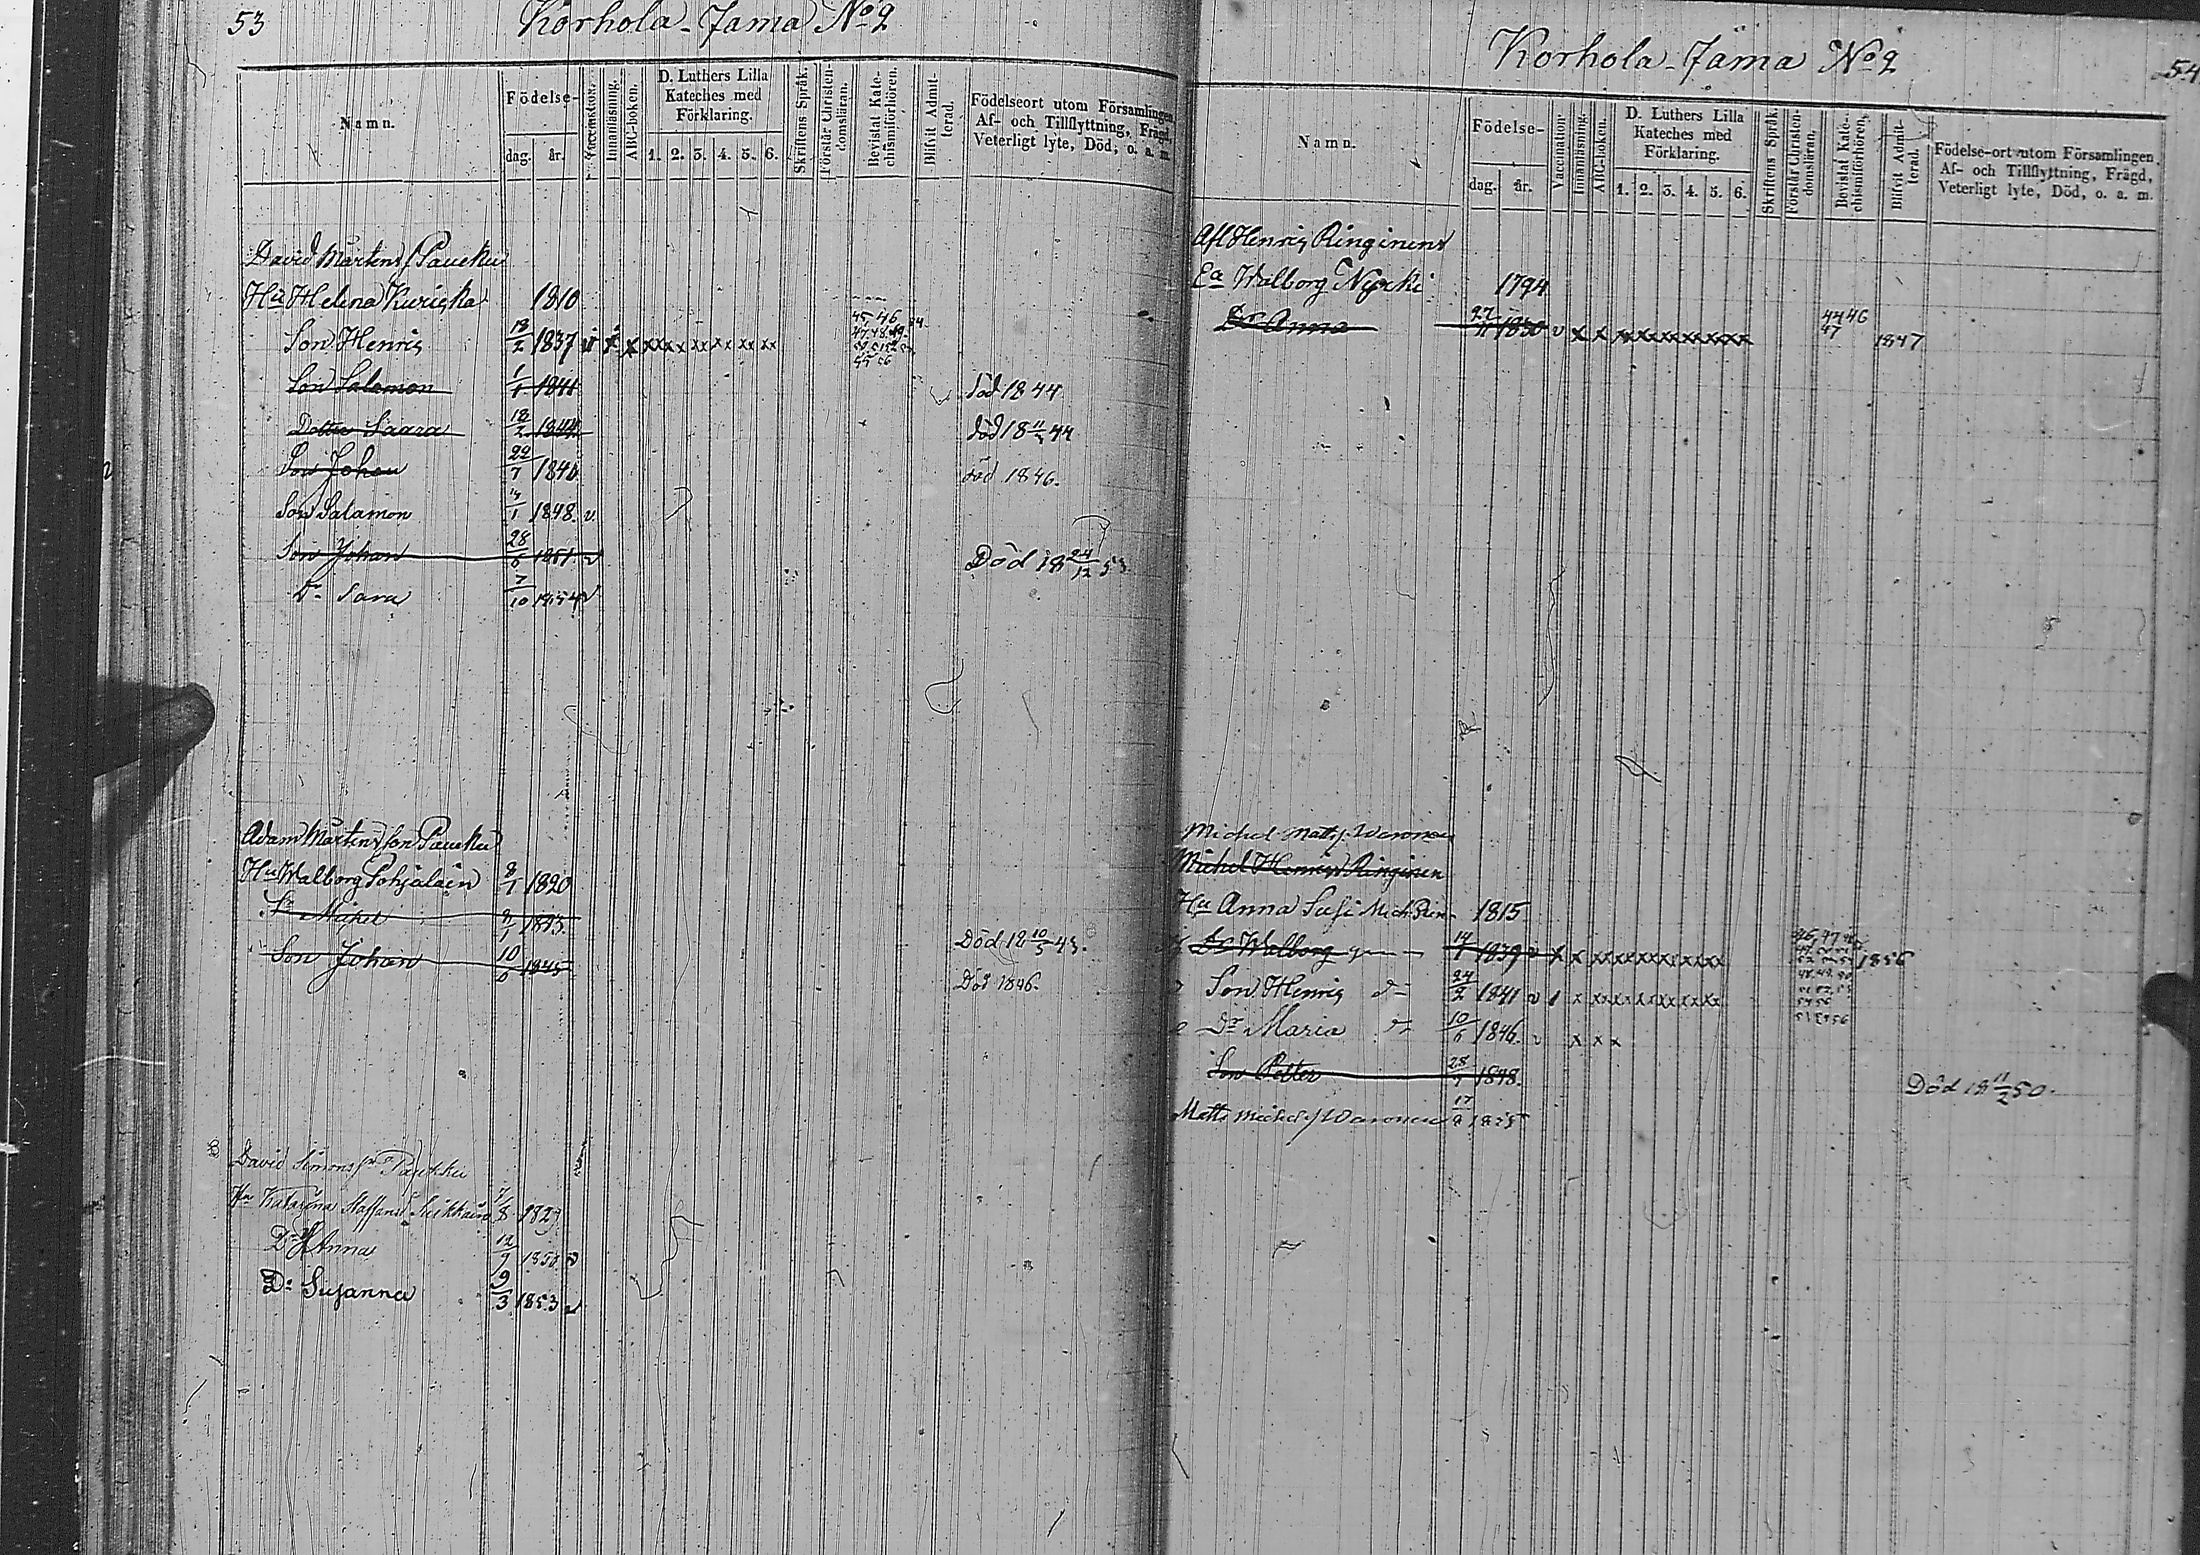 53
Korhola-Jama No 2
Namn.
Födelse-
dag. år.
Vaccination.
Innanläsning.
ABC-boken.
D. Luthers Lilla
Kateches med
Förklaring.
1. 2. 3. 4. 5. 6.
Skriftens Språk.
Förstår Christen-
domsläran.
Bevistat Kate-
chismiförhören.
Blifvit Admit-
terad.
Födelseort utom Församlingen
Af- och Tillflyttning, Frägd,
Veterligt lyte, Död, o. a. m.
David Mårtens Paucku
Hu Helena Kuricka 1810
Son Henric 18/2 1837 v x x xx xx xx xx xx xx 45 46
Son Salamon 1/1 1841 död 1844
Dotter Saara 18/2 1844 död 18 11/3 44
Son Johan 22/7 1840 död 1846.
Son Salamon 1/1 1848. v.
Son Johan 28/6 1851. v Död 18 24/12 53
Dr Sara 7/10 1854 v
Adam Mårtensson Paucku
Hu Walborg Pohjalain 8/1 1820
Sn Mickel 8/1 1843. Död 18 10/5 43.
Son Johan 10/6 1845 Död 1846.
David Simons Paukku
Hu Katarina Staffans 7/8 1829
Dr Anna 12/9 1850. v
Dr Susanna 9/3 1853 v
54
Korhola-Jama No 2
Namn.
Födelse-
dag. år.
Vaccination
Innanläsning.
ABC-boken.
D. Luthers Lilla
Kateches med
Förklaring.
1. 2. 3. 4. 5. 6.
Skriftens Språk.
Förstår Christen-
domsläran.
Bevistat Kate-
chismiförhören.
Blifvit Admit-
terad.
Födelse-ort utom Församlingen
Af- och Tillflyttning, Frägd,
Veterligt lyte, Död, o. a. m.
Afl Henric Ringinens
Ea Walborg Nyrki 1794
Dr Anna 27/11 1830 v x x xxxxxxxxxxxx 44 46 47 1847
Michel Matts. Waronen
Michel Henrics Ringinen
Hu Anna Susi 1815
Dr Walborg 14/1 1839 v x x xxxxxxxxxxxx 46, 47 1856
Son Henric 24/2 1841 v x xxxxxxxxxxxx
Dr Maria 10/6 1846. v x x x
Son Petter 28/7 1848. Död 18 11/2 50.
Matts Michels. Waronen 17/9 1855